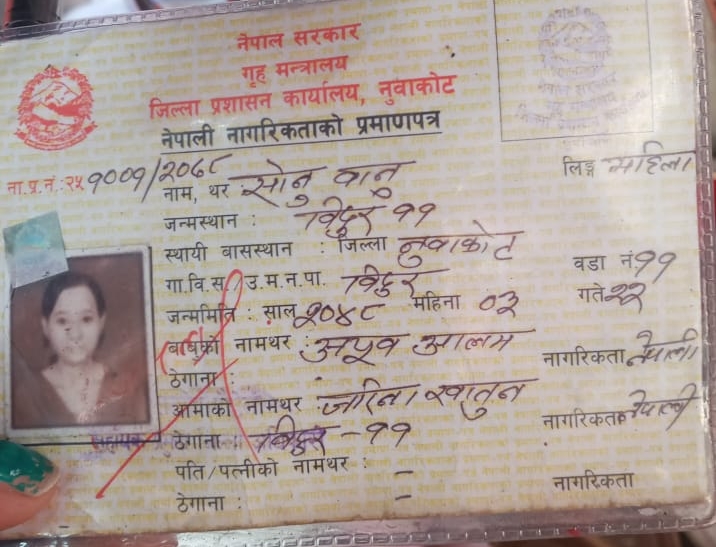 नेपाल सरकार
गृह मन्त्रालय
जिल्ला प्रशासन कार्यालय, नुवाकोट
नेपाली नागरिकताको प्रमाणपत्र
ना.प्र.नं.: २५१००१/२०६८
लिङ्ग महिला
नाम, थर सोनु वानु
जन्मस्थान : विदुर ११
स्थायी बासस्थान : जिल्ला नुवाकोट
गा.वि.स./उ.म.न.पा. विदुर वडा नं ११
जन्ममिति : साल २०४८ महिना ०३ गते २२
बाबुको नामथर : आलम नागरिकता नेपाली
ठेगाना :
आमाको नामथर खातुन नागरिकता नेपाली
ठेगाना : विदुर - ११
पति/पत्नीको नामथर : -
ठेगाना : - नागरिकता